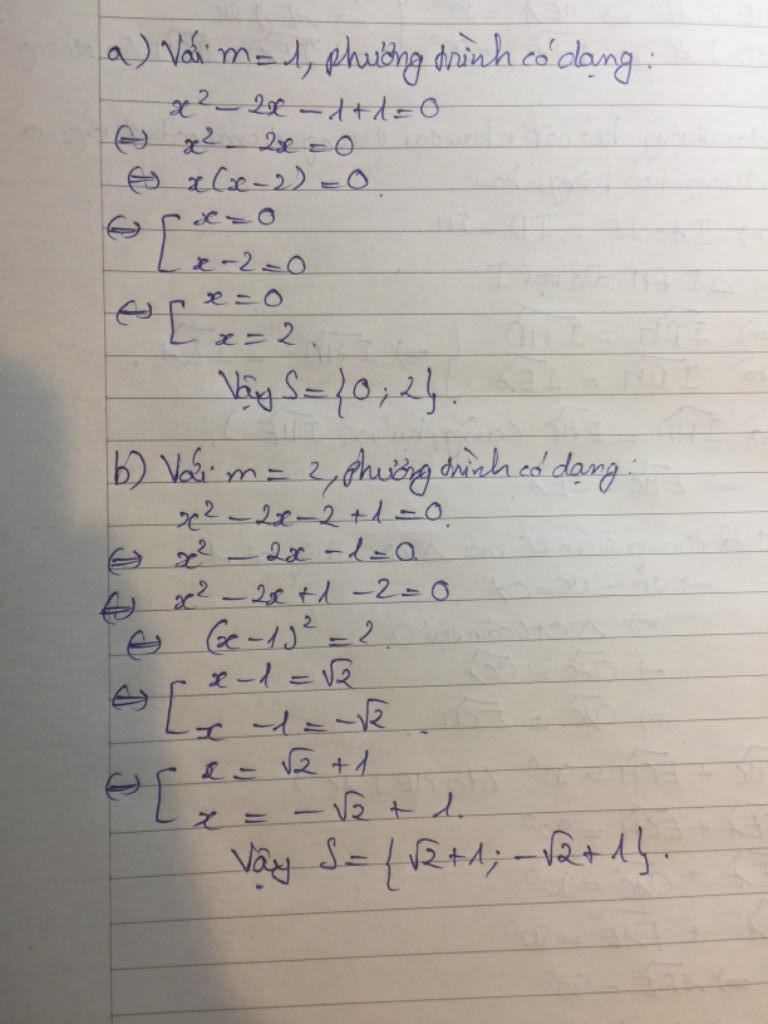 a) Với m = 1, phương trình có dạng :
x² - 2x - 1 + 1 = 0
⇔ x² - 2x = 0
⇔ x(x-2) = 0.
⇔ [ x = 0
x - 2 = 0
⇔ [ x = 0
x = 2.
Vậy S = {0 ; 2}.
b) Với m = 2, phương trình có dạng :
x² - 2x - 2 + 1 = 0.
⇔ x² - 2x - 1 = 0.
⇔ x² - 2x + 1 - 2 = 0
⇔ (x-1)² = 2.
⇔ [ x - 1 = √2
x - 1 = -√2.
⇔ [ x = √2 + 1
x = -√2 + 1.
Vậy S = {√2+1; -√2+1}.